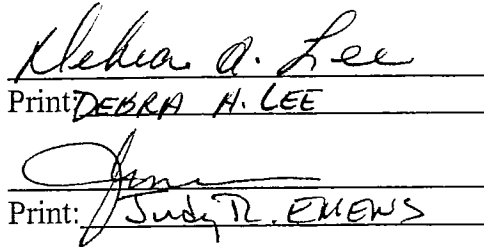 Debra A. Lee
Print: DEBRA A. LEE
Print: Judy R. EMENS